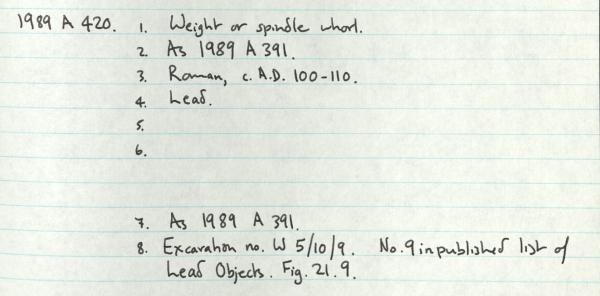 1989 A 420. 1. Weight or spindle whorl.
2. As 1989 A 391.
3. Roman, c. A.D. 100-110.
4. Lead.
5.
6.
7. As 1989 A 391.
8. Excavation no. W 5/10/9. No. 9 in published list of
Lead Objects. Fig. 21.9.